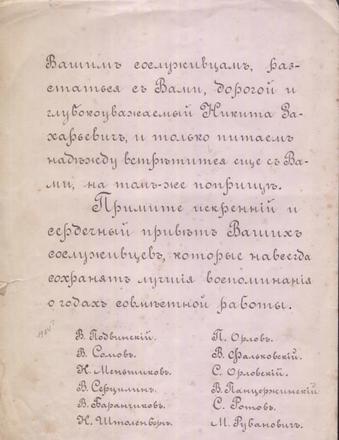 Вашимъ сослуживцамъ, раз-
статься съ Вами, дорогой и
глубокоуважаемый Никита За-
харьевичъ, и только питаемъ
надѣжду встрѣтится еще съ Ва-
ми, на томъ-же поприщѣ.
Примите искренній и
сердечный привѣтъ Вашихъ
сослуживцевъ, которые навсегда
сохранятъ лучшія воспоминанія
о годахъ совмѣстной работы.
В. Подвинскій. П. Орловъ.
В. Соловъ. В. Фальковскій.
Н. Меньшиковъ. С. Орловскій.
В. Серцилинъ. В. Панцержинскій
В. Баранчиковъ. С. Ротовъ.
Н. Штоленберъ. М. Рувановичъ.